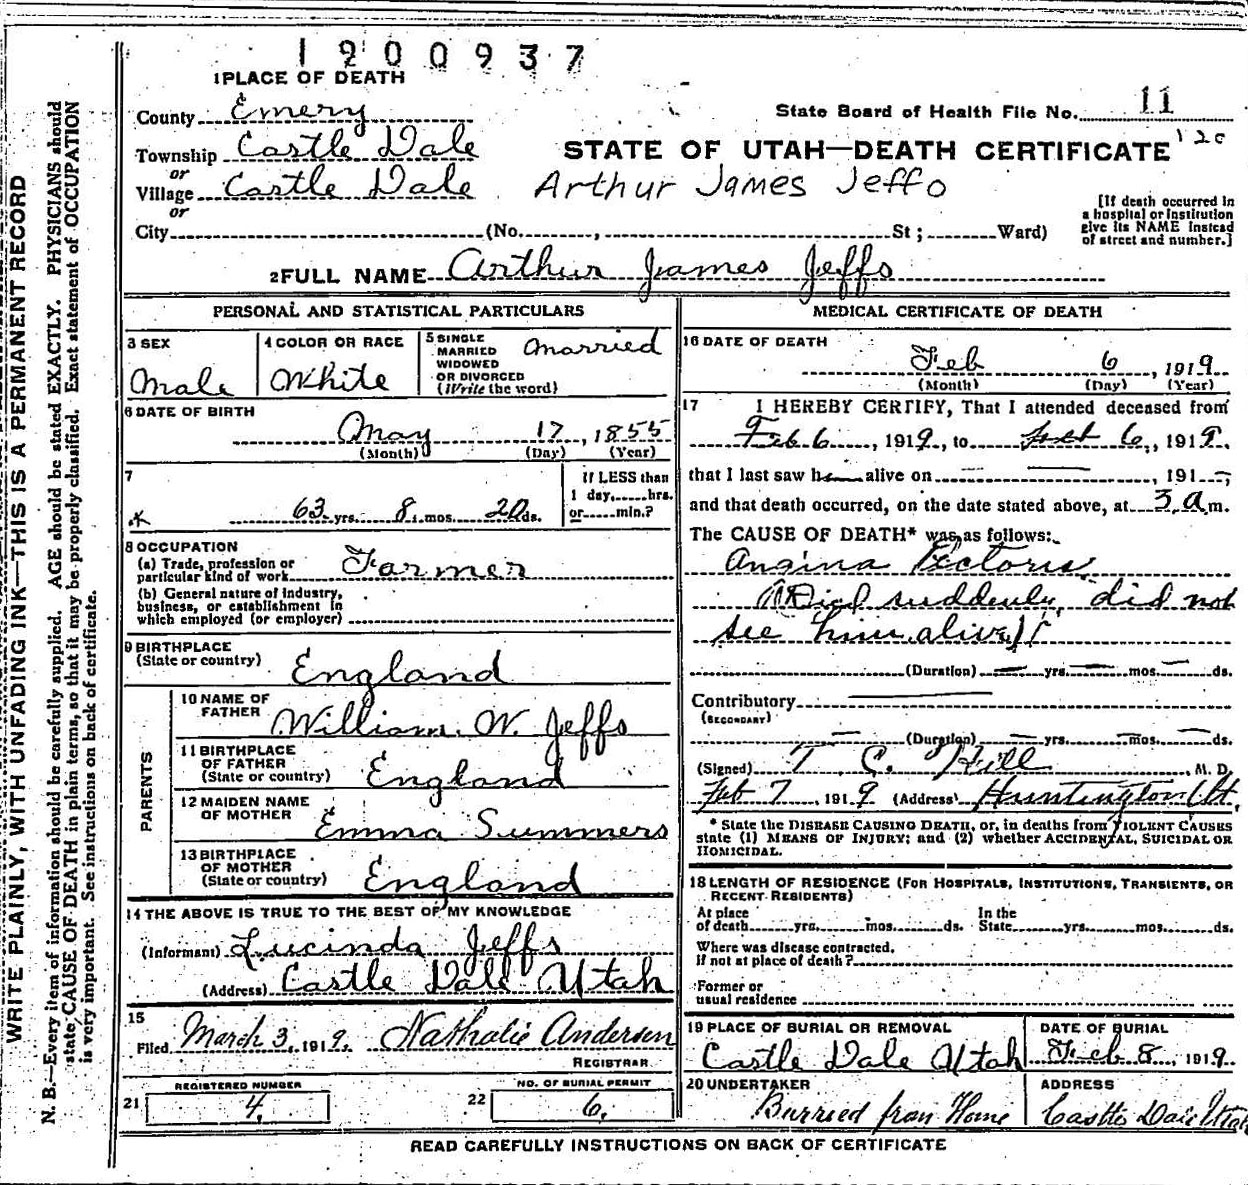 1200937
1 PLACE OF DEATH
County Emery
State Board of Health File No. 11
Township Castle Dale
STATE OF UTAH—DEATH CERTIFICATE 120
or
Village Castle Dale Arthur James Jeffo
or
City (No. , St ; Ward)
[If death occurred in
a hospital or institution
give its NAME instead
of street and number.]
2 FULL NAME Arthur James Jeffs
PERSONAL AND STATISTICAL PARTICULARS
3 SEX
Male
4 COLOR OR RACE
White
5 SINGLE
MARRIED
WIDOWED
OR DIVORCED
(Write the word)
Married
6 DATE OF BIRTH
May 17, 1855
(Month) (Day) (Year)
7
63 yrs. 8 mos. 20 ds.
If LESS than
1 day, hrs.
or min.?
8 OCCUPATION
(a) Trade, profession or
particular kind of work Farmer
(b) General nature of industry,
business, or establishment in
which employed (or employer)
9 BIRTHPLACE
(State or country) England
PARENTS
10 NAME OF
FATHER William W. Jeffs
11 BIRTHPLACE
OF FATHER
(State or country) England
12 MAIDEN NAME
OF MOTHER Emma Summers
13 BIRTHPLACE
OF MOTHER
(State or country) England
14 THE ABOVE IS TRUE TO THE BEST OF MY KNOWLEDGE
(Informant) Lucinda Jeffs
(Address) Castle Dale Utah
15
Filed March 3, 1919. Nathalie Andersen
REGISTRAR
REGISTERED NUMBER
21 4.
NO. OF BURIAL PERMIT
22 6.
MEDICAL CERTIFICATE OF DEATH
16 DATE OF DEATH
Feb 6, 1919
(Month) (Day) (Year)
17 I HEREBY CERTIFY, That I attended deceased from
Feb 6, 1919, to Feb 6, 1919,
that I last saw h alive on , 191 ,
and that death occurred, on the date stated above, at 3 a m.
The CAUSE OF DEATH* was as follows:
Angina Pectoris
Died suddenly, did not
see him alive
(Duration) yrs. mos. ds.
Contributory
(SECONDARY)
(Duration) yrs. mos. ds.
(Signed) T. C. Hill, M. D.
Feb 7, 1919 (Address) Huntington Ut.
* State the DISEASE CAUSING DEATH, or, in deaths from VIOLENT CAUSES
state (1) MEANS OF INJURY; and (2) whether ACCIDENTAL, SUICIDAL OR
HOMICIDAL.
18 LENGTH OF RESIDENCE (FOR HOSPITALS, INSTITUTIONS, TRANSIENTS, OR
RECENT RESIDENTS)
At place
of death yrs. mos. ds.
In the
State yrs. mos. ds.
Where was disease contracted,
if not at place of death?
Former or
usual residence
19 PLACE OF BURIAL OR REMOVAL
Castle Dale Utah
DATE OF BURIAL
Feb 8, 1919
20 UNDERTAKER
Burried from Home
ADDRESS
Castle Dale Utah
READ CAREFULLY INSTRUCTIONS ON BACK OF CERTIFICATE
WRITE PLAINLY, WITH UNFADING INK—THIS IS A PERMANENT RECORD
N. B.—Every item of information should be carefully supplied. AGE should be stated EXACTLY. PHYSICIANS should
state CAUSE OF DEATH in plain terms, so that it may be properly classified. Exact statement of OCCUPATION
is very important. See instructions on back of certificate.